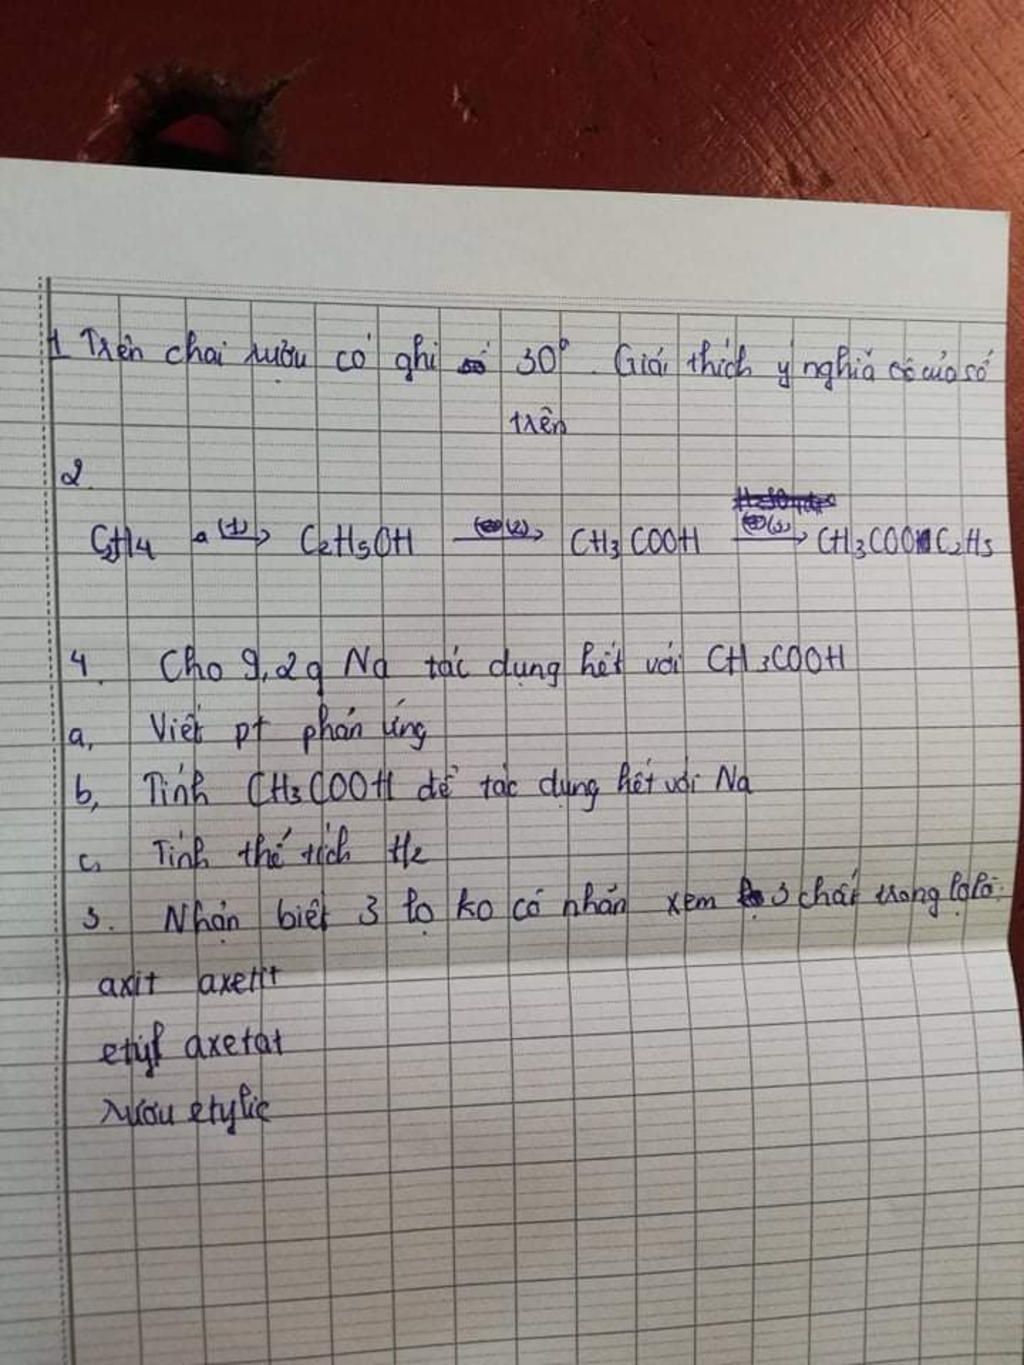 1 Trên chai rượu có ghi số 30°. Giải thích ý nghĩa của số
trên
2.
C2H4 (1)→ C2H5OH (2)→ CH3COOH (3)→ CH3COOC2H5
4. Cho 9,2g Na tác dụng hết với CH3COOH
a, Viết pt phản ứng
b, Tính CH3COOH để tác dụng hết với Na
c, Tính thể tích H2
3. Nhận biết 3 lọ ko có nhãn xem 3 chất trong lọ là:
axit axetit
etyl axetat
rượu etylic